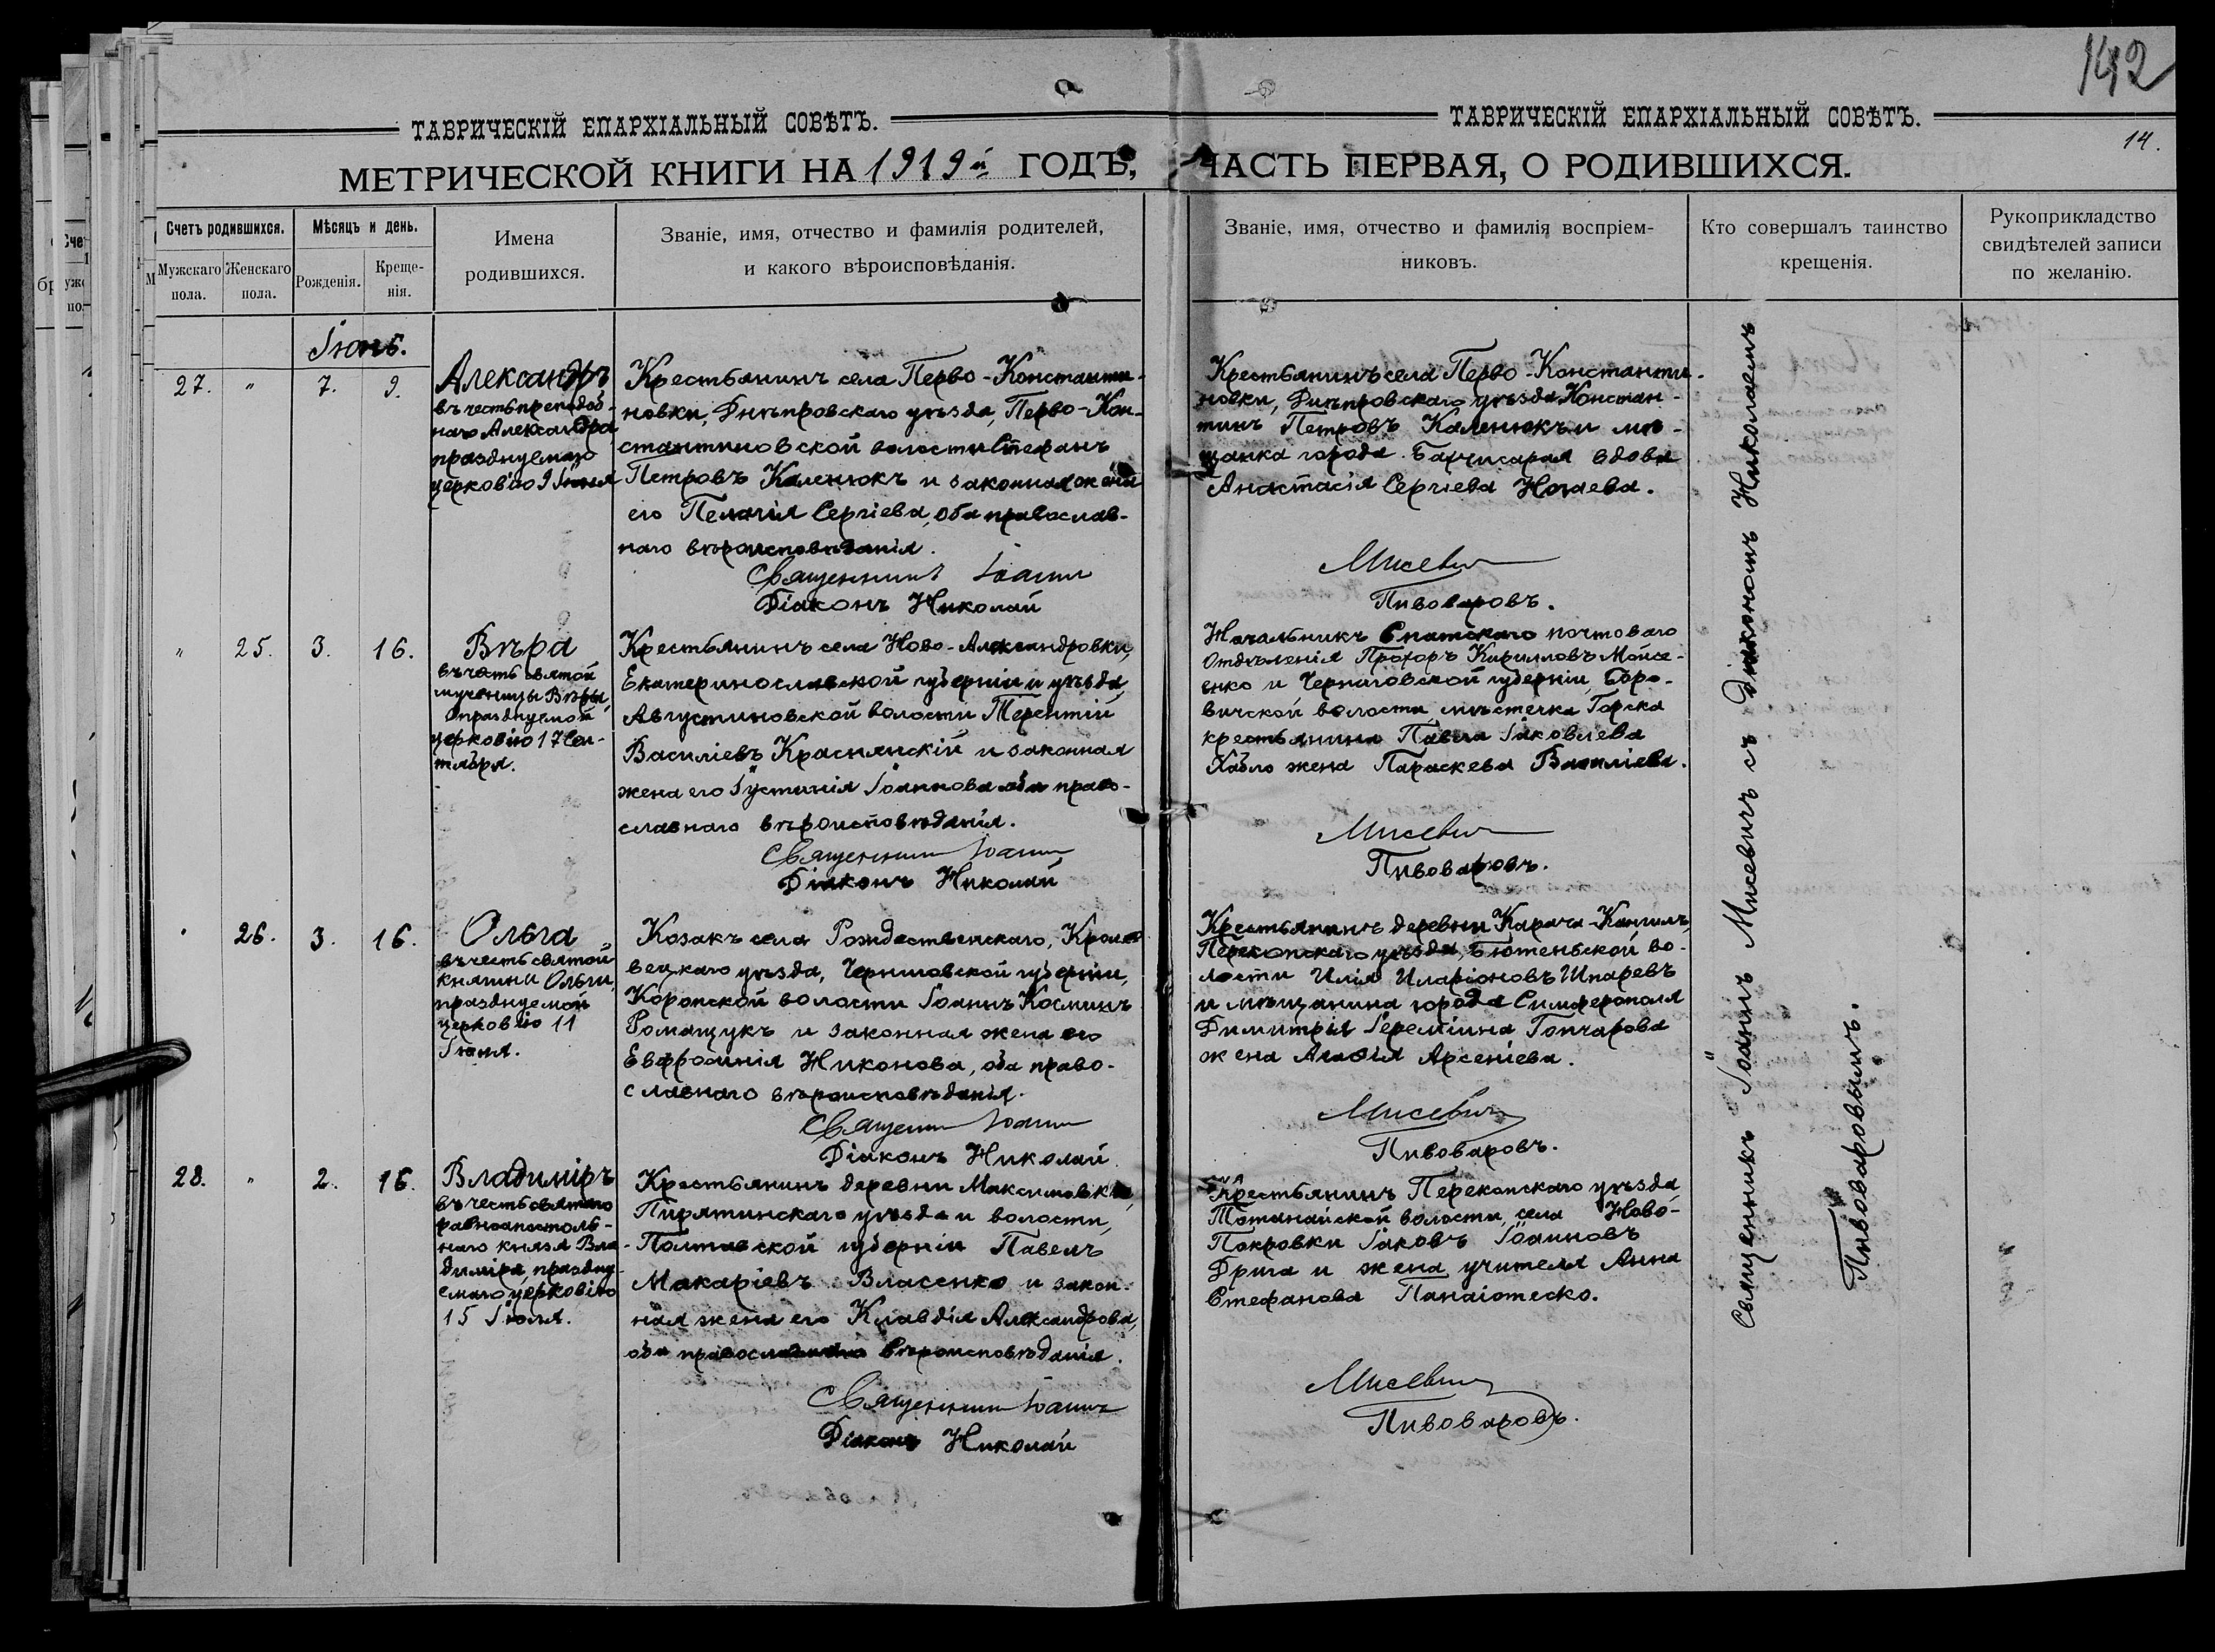 142
ТАВРИЧЕСКІЙ ЕПАРХІАЛЬНЫЙ СОВѢТЪ.
МЕТРИЧЕСКОЙ КНИГИ НА 1919й ГОДЪ,
Счетъ родившихся.
Мужскаго пола.
Женскаго пола.
Мѣсяцъ и день.
Рожденія.
Креще-
нія.
Имена
родившихся.
Званіе, имя, отчество и фамилія родителей,
и какого вѣроисповѣданія.
ТАВРИЧЕСКІЙ ЕПАРХІАЛЬНЫЙ СОВѢТЪ.
14.
ЧАСТЬ ПЕРВАЯ, О РОДИВШИХСЯ.
Званіе, имя, отчество и фамилія воспріем-
никовъ.
Кто совершалъ таинство
крещенія.
Рукоприкладство
свидѣтелей записи
по желанію.
Іюнь.
27. " 7. 9.
Александръ
въ честь преподоб-
наго Александра
празднуемаго
церковію 9 Іюня
Крестьянинъ села Перво-Константи-
новки, Днѣпровскаго уѣзда, Перво-Кон-
стантиновской волости Стефанъ
Петровъ Каленюкъ и законная жена
его Пелагія Сергіева, оба православ-
наго вѣроисповѣданія.
Священникъ Іоаннъ
Діаконъ Николай
Крестьянинъ села Перво-Константи-
новки, Днѣпровскаго уѣзда Констан-
тинъ Петровъ Каленюкъ и мѣ-
щанка города Бахчисарая вдова
Анастасія Сергіева Ногаева.
Мисевич
Пивоваровъ.
" 25. 3. 16.
Вѣра
въ честь святой
мученицы Вѣры,
празднуемой
церковію 17 Сен-
тября.
Крестьянинъ села Ново-Александровки,
Екатеринославской губерніи и уѣзда,
Августиновской волости Терентій
Василіевъ Краснянскій и законная
жена его Іустинія Іоаннова оба право-
славнаго вѣроисповѣданія.
Священникъ Іоаннъ
Діаконъ Николай
Начальникъ Спатскаго почтоваго
Отдѣленія Прохоръ Кирилловъ Моисе-
енко и Черниговской губерніи, Боро-
вичской волости, мѣстечка Горска
крестьянина Павла Іаковлева
Хабло жена Параскева Василіева.
Мисевич
Пивоваровъ.
" 26. 3. 16.
Ольга
въ честь святой
княгини Ольги,
празднуемой
церковію 11
Іюля.
Козакъ села Рождественскаго, Кроле-
вецкаго уѣзда, Черниговской губерніи,
Коропской волости Іоаннъ Косминъ
Ромащукъ и законная жена его
Евфросинія Никонова, оба право-
славнаго вѣроисповѣданія.
Священникъ Іоаннъ
Діаконъ Николай
Крестьянинъ деревни Карача-Кангилъ,
Перекопскаго уѣзда, Бютеньской во-
лости Илія Иларіоновъ Шпаревъ
и мѣщанина города Симферополя
Димитрія Іереміина Гончарова
жена Агафія Арсеніева.
Мисевич
Пивоваровъ.
28. " 2. 16.
Владиміръ
въ честь святаго
равноапостоль-
наго князя Вла-
диміра, праздну-
емаго церковію
15 Іюля.
Крестьянинъ деревни Максимовки,
Пирятинскаго уѣзда и волости,
Полтавской губерніи Павелъ
Макаріевъ Власенко и закон-
ная жена его Клавдія Александрова,
оба православнаго вѣроисповѣданія.
Священникъ Іоаннъ
Діаконъ Николай
Крестьянинъ Перекопскаго уѣзда
Тотанайской волости, села Ново-
Покровки Іаковъ Іоанновъ
Дрига и жена учителя Анна
Стефанова Панаіотеско.
Мисевич
Пивоваровъ.
Священникъ Іоаннъ Мисевичъ съ Діакономъ Николаемъ
Пивоваровымъ.